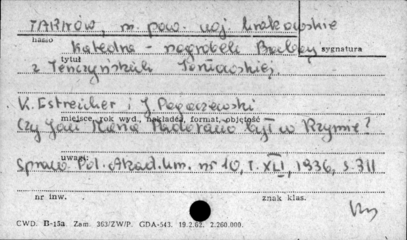 TARNÓW, m. pow. woj. krakowskie
hasło
Katedra - nagrobek Barbary
sygnatura
tytuł
z Tenczyńskich Tarnowskiej.
K. Estreicher i J. Pagaczewski
miejsce, rok wyd., nakładca, format, objętość
Czy Jan Maria Padovano był w Rzymie?
uwagi:
Spraw. Pol. Akad. Um. nr 10, t. XLI, 1936, s. 311
nr inw.
znak klas.
CWD. B-15a. Zam. 363/ZW/P. GDA-543. 19.2.62. 2.260.000.